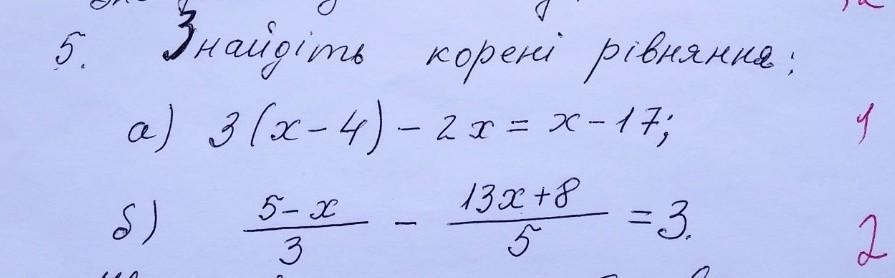 5. Знайдіть корені рівняння:
а) 3(x-4) - 2x = x-17; 1
б) (5-x)/3 - (13x+8)/5 = 3. 2